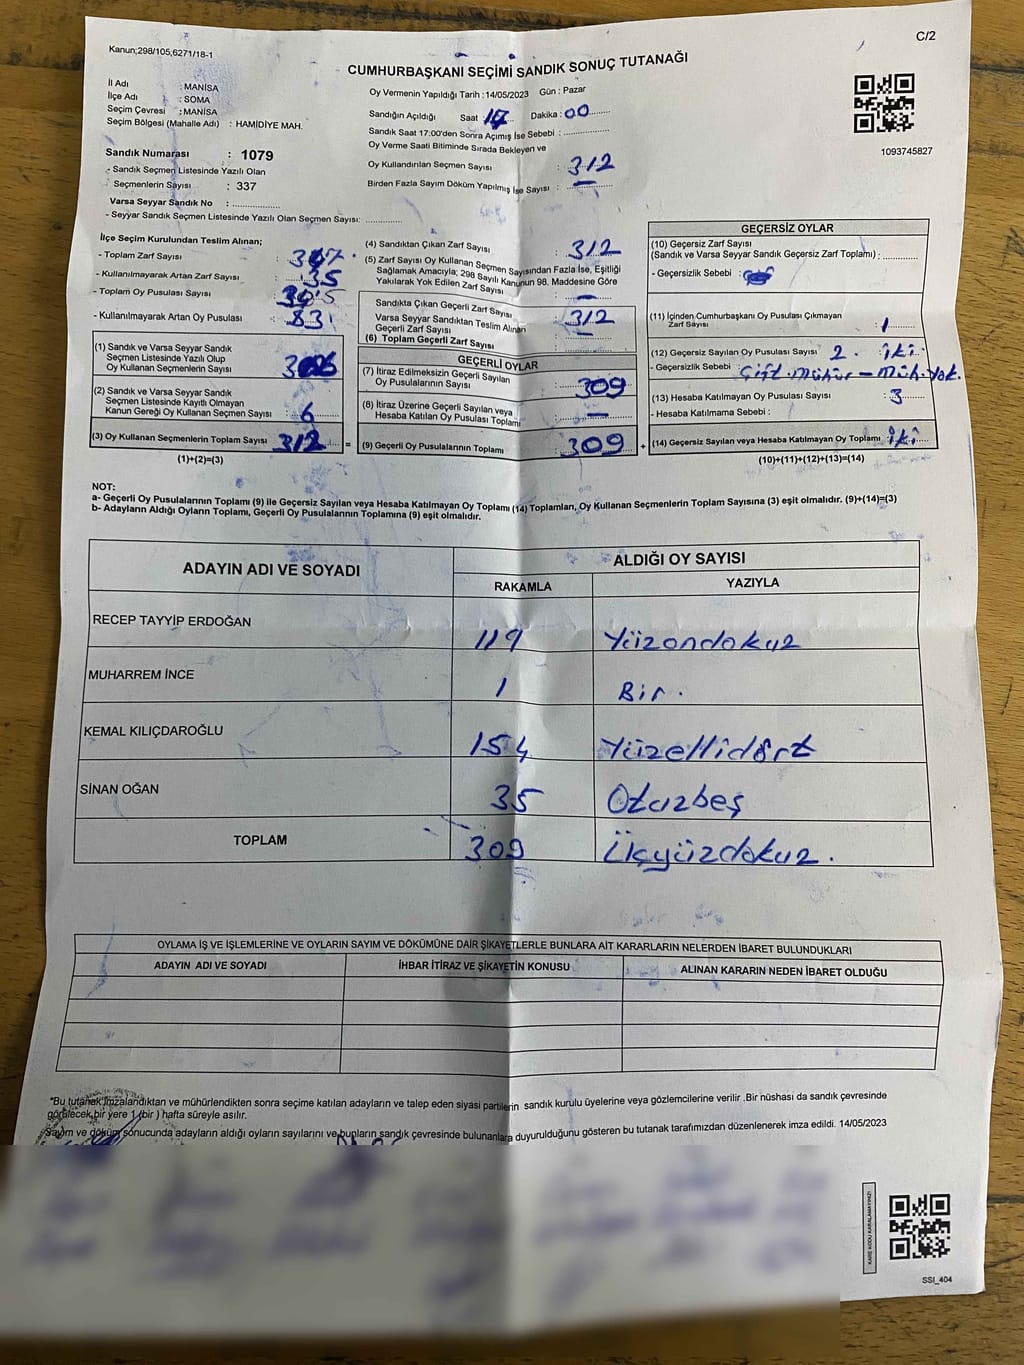 Kanun;298/105,6271/18-1
C/2
CUMHURBAŞKANI SEÇİMİ SANDIK SONUÇ TUTANAĞI
İl Adı : MANİSA
İlçe Adı : SOMA
Seçim Çevresi : MANİSA
Seçim Bölgesi (Mahalle Adı) : HAMİDİYE MAH.
Sandık Numarası : 1079
- Sandık Seçmen Listesinde Yazılı Olan
Seçmenlerin Sayısı : 337
Varsa Seyyar Sandık No :
- Seyyar Sandık Seçmen Listesinde Yazılı Olan Seçmen Sayısı:
Oy Vermenin Yapıldığı Tarih : 14/05/2023 Gün : Pazar
Sandığın Açıldığı Saat 17 Dakika : 00
Sandık Saat 17:00'den Sonra Açımış İse Sebebi :
Oy Verme Saati Bitiminde Sırada Bekleyen ve
Oy Kullandırılan Seçmen Sayısı : 312
Birden Fazla Sayım Döküm Yapılmış İse Sayısı : —
1093745827
İlçe Seçim Kurulundan Teslim Alınan;
- Toplam Zarf Sayısı : 347
- Kullanılmayarak Artan Zarf Sayısı : 35
- Toplam Oy Pusulası Sayısı :
- Kullanılmayarak Artan Oy Pusulası : 83
(1) Sandık ve Varsa Seyyar Sandık
Seçmen Listesinde Yazılı Olup
Oy Kullanan Seçmenlerin Sayısı : 306
(2) Sandık ve Varsa Seyyar Sandık
Seçmen Listesinde Kayıtlı Olmayan
Kanun Gereği Oy Kullanan Seçmen Sayısı : 6
(3) Oy Kullanan Seçmenlerin Toplam Sayısı 312 =
(1)+(2)=(3)
(4) Sandıktan Çıkan Zarf Sayısı : 312
(5) Zarf Sayısı Oy Kullanan Seçmen Sayısından Fazla İse, Eşitliği
Sağlamak Amacıyla; 298 Sayılı Kanunun 98. Maddesine Göre
Yakılarak Yok Edilen Zarf Sayısı : —
Sandıkta Çıkan Geçerli Zarf Sayısı : 312
Varsa Seyyar Sandıktan Teslim Alınan
Geçerli Zarf Sayısı : —
(6) Toplam Geçerli Zarf Sayısı :
GEÇERLİ OYLAR
(7) İtiraz Edilmeksizin Geçerli Sayılan
Oy Pusulalarının Sayısı : 309
(8) İtiraz Üzerine Geçerli Sayılan veya
Hesaba Katılan Oy Pusulası Toplamı : —
(9) Geçerli Oy Pusulalarının Toplamı : 309 +
GEÇERSİZ OYLAR
(10) Geçersiz Zarf Sayısı
(Sandık ve Varsa Seyyar Sandık Geçersiz Zarf Toplamı) :
- Geçersizlik Sebebi :
(11) İçinden Cumhurbaşkanı Oy Pusulası Çıkmayan
Zarf Sayısı : 1
(12) Geçersiz Sayılan Oy Pusulası Sayısı 2. iki.
- Geçersizlik Sebebi : Çift mühür - Müh. Yok.
(13) Hesaba Katılmayan Oy Pusulası Sayısı : 3
- Hesaba Katılmama Sebebi :
(14) Geçersiz Sayılan veya Hesaba Katılmayan Oy Toplamı : iki
(10)+(11)+(12)+(13)=(14)
NOT:
a- Geçerli Oy Pusulalarının Toplamı (9) ile Geçersiz Sayılan veya Hesaba Katılmayan Oy Toplamı (14) Toplamları, Oy Kullanan Seçmenlerin Toplam Sayısına (3) eşit olmalıdır. (9)+(14)=(3)
b- Adayların Aldığı Oyların Toplamı, Geçerli Oy Pusulalarının Toplamına (9) eşit olmalıdır.
ADAYIN ADI VE SOYADI
ALDIĞI OY SAYISI
RAKAMLA YAZIYLA
RECEP TAYYİP ERDOĞAN 119 Yüzondokuz
MUHARREM İNCE 1 Bir.
KEMAL KILIÇDAROĞLU 154 Yüzellidört
SİNAN OĞAN 35 Otuzbeş
TOPLAM 309 Üçyüzdokuz.
OYLAMA İŞ VE İŞLEMLERİNE VE OYLARIN SAYIM VE DÖKÜMÜNE DAİR ŞİKAYETLERLE BUNLARA AİT KARARLARIN NELERDEN İBARET BULUNDUKLARI
ADAYIN ADI VE SOYADI İHBAR İTİRAZ VE ŞİKAYETİN KONUSU ALINAN KARARIN NEDEN İBARET OLDUĞU
"Bu tutanak imzalandıktan ve mühürlendikten sonra seçime katılan adayların ve talep eden siyasi partilerin sandık kurulu üyelerine veya gözlemcilerine verilir .Bir nüshası da sandık çevresinde
görülecek bir yere 1 (bir ) hafta süreyle asılır.
Sayım ve döküm sonucunda adayların aldığı oyların sayılarını ve bunların sandık çevresinde bulunanlara duyurulduğunu gösteren bu tutanak tarafımızdan düzenlenerek imza edildi. 14/05/2023
KARE KODU KARALAMAYINIZ!
SSI_404